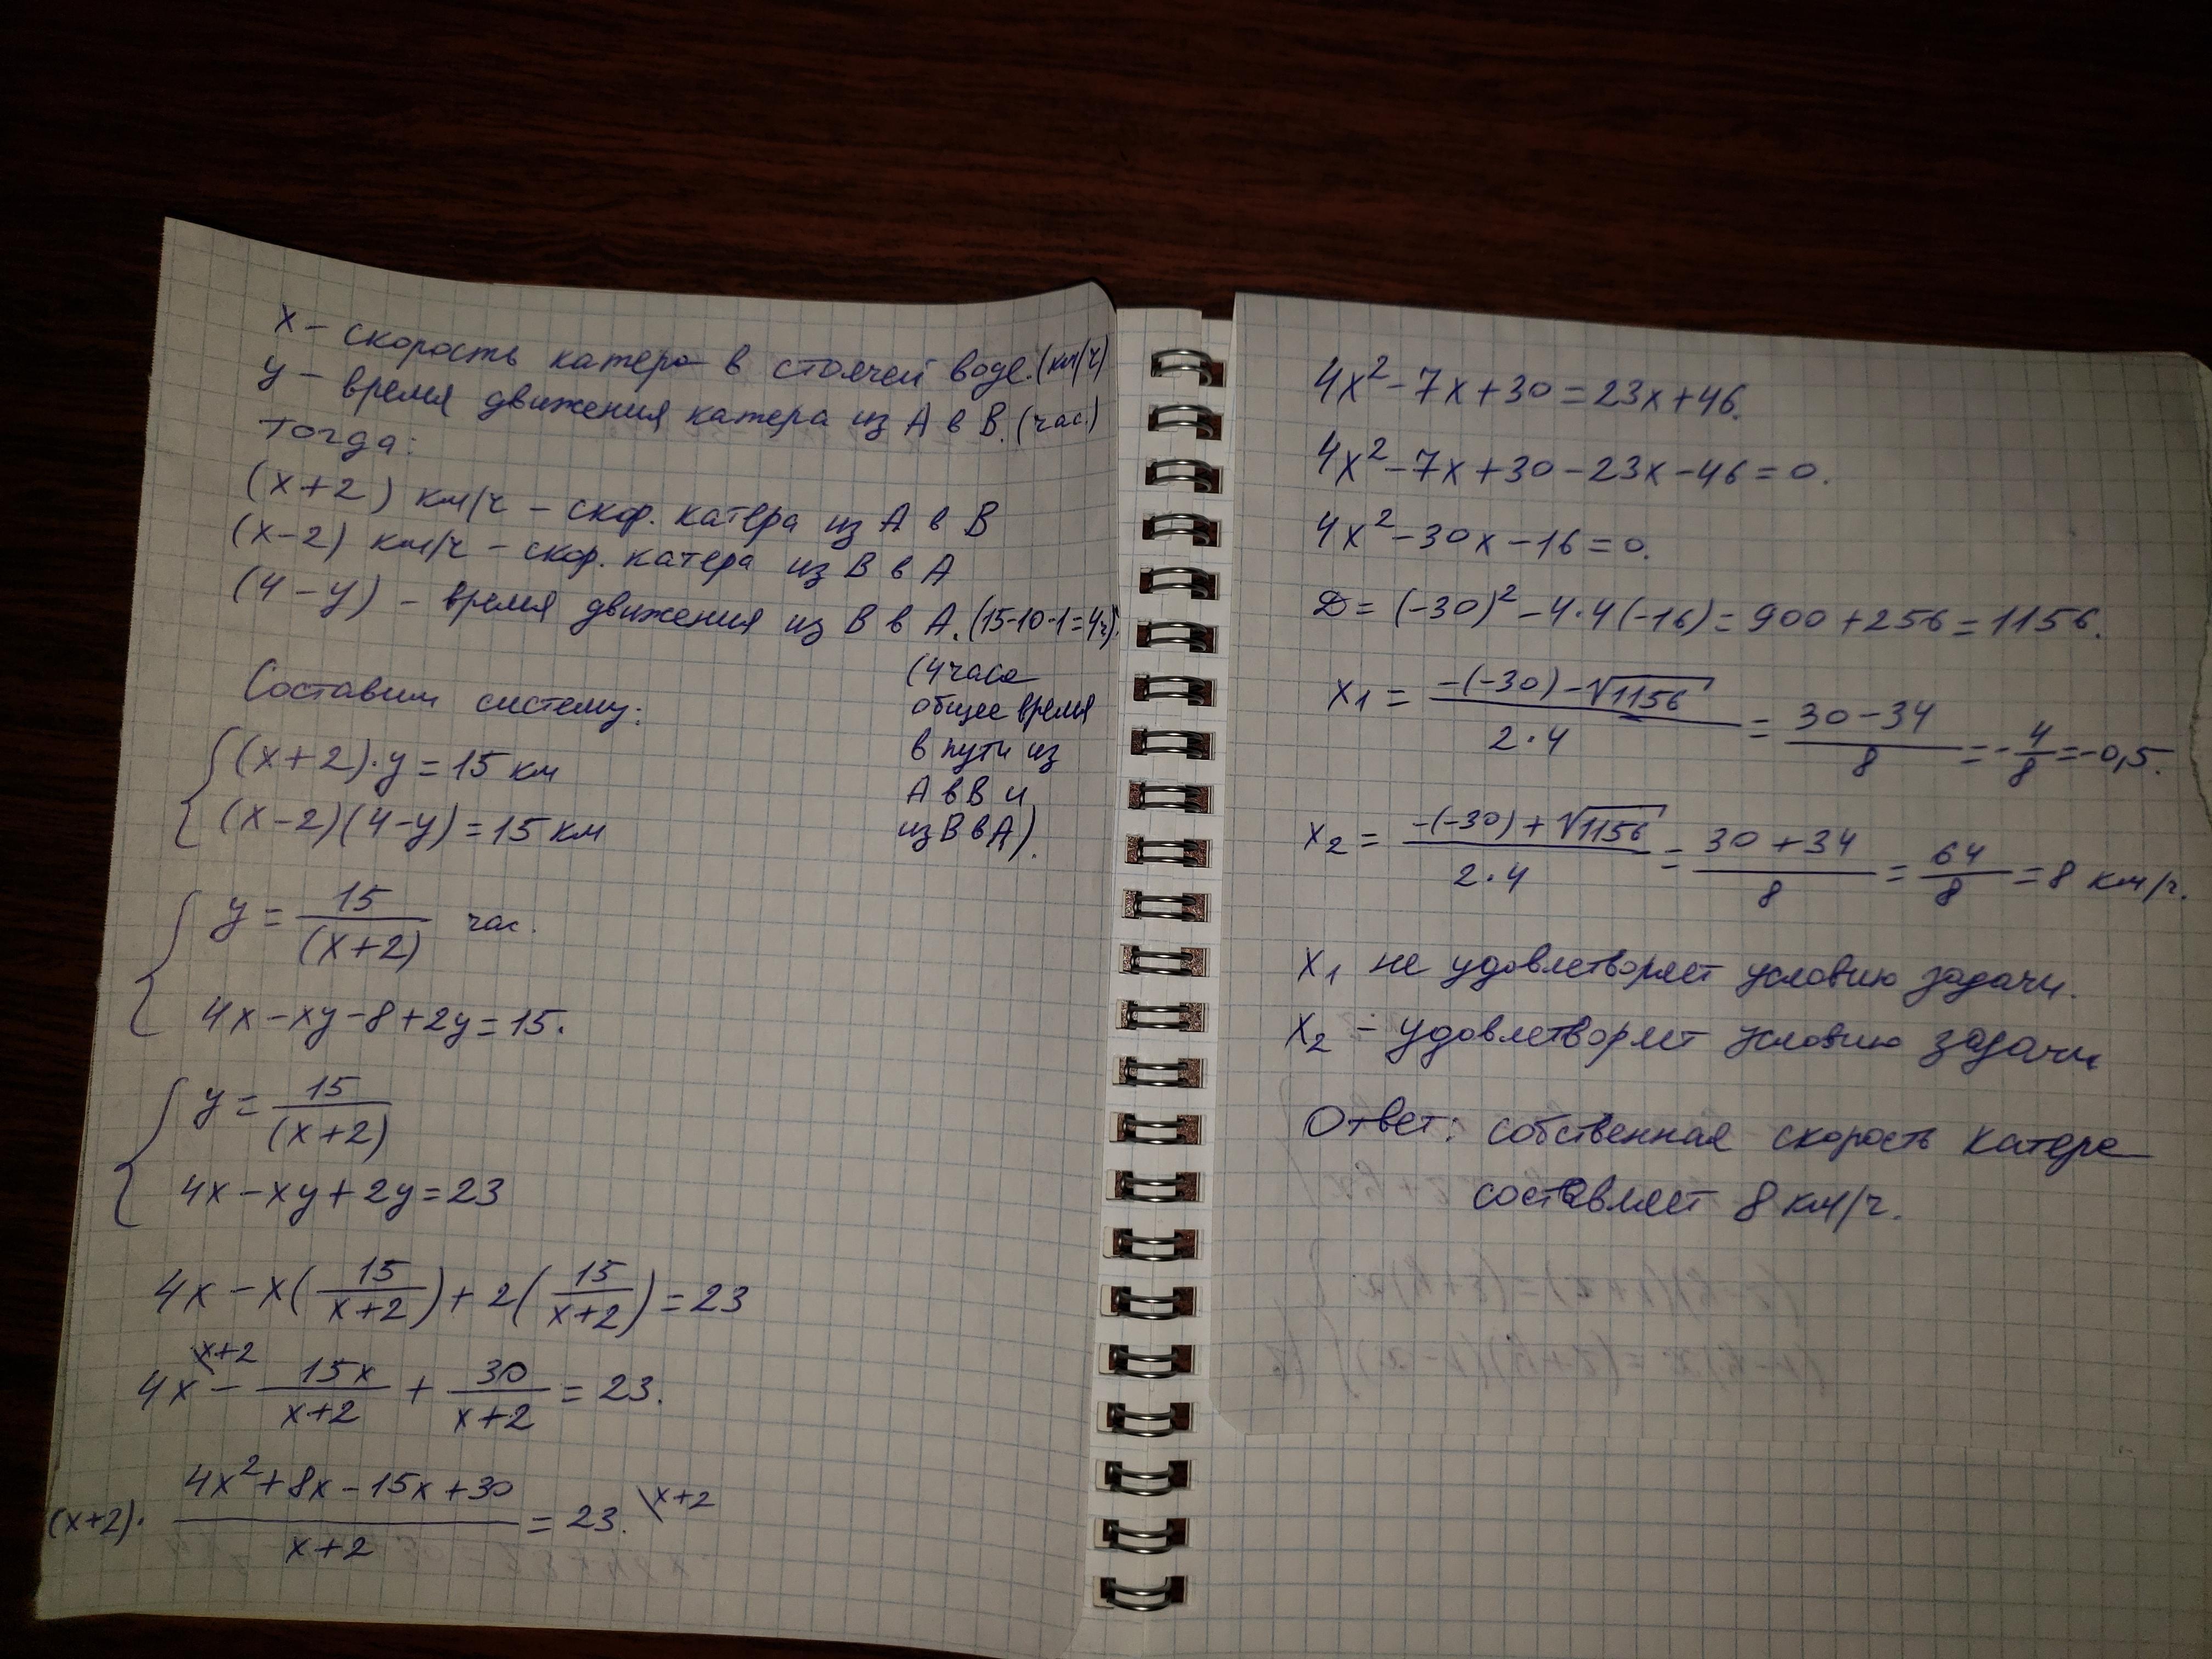 x – скорость катера в стоячей воде. (км/ч)
y – время движения катера из A в B. (час.)
Тогда:
(x+2) км/ч – скор. катера из A в B
(x-2) км/ч – скор. катера из B в A
(4-y) – время движения из B в A. (15-10-1=4ч).
(4 часа
общее время
в пути из
A в B и
из B в A).
Составим систему:
(x+2)·y=15 км
(x-2)(4-y)=15 км
y = 15/(x+2) час.
4x-xy-8+2y=15.
y = 15/(x+2)
4x-xy+2y=23
4x-x(15/(x+2))+2(15/(x+2))=23
4x \x+2 - 15x/(x+2) + 30/(x+2) = 23.
(x+2)· (4x²+8x-15x+30)/(x+2) = 23. \x+2
4x²-7x+30=23x+46.
4x²-7x+30-23x-46=0.
4x²-30x-16=0.
D=(-30)²-4·4(-16)=900+256=1156.
x₁ = (-(-30)-√1156)/(2·4) = (30-34)/8 = -4/8=-0,5.
x₂ = (-(-30)+√1156)/(2·4) = (30+34)/8 = 64/8 = 8 км/ч.
x₁ не удовлетворяет условию задачи.
x₂ – удовлетворяет условию задачи
Ответ: собственная скорость катера
составляет 8 км/ч.